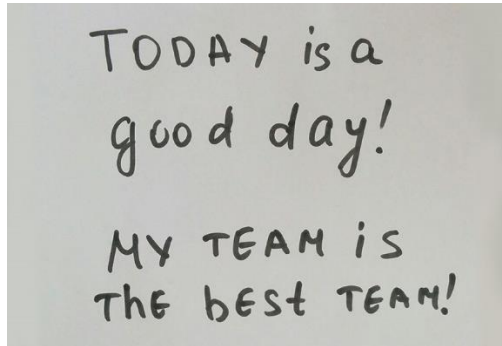 TODAY is a
good day!
MY TEAM is
The bEst TEAM!